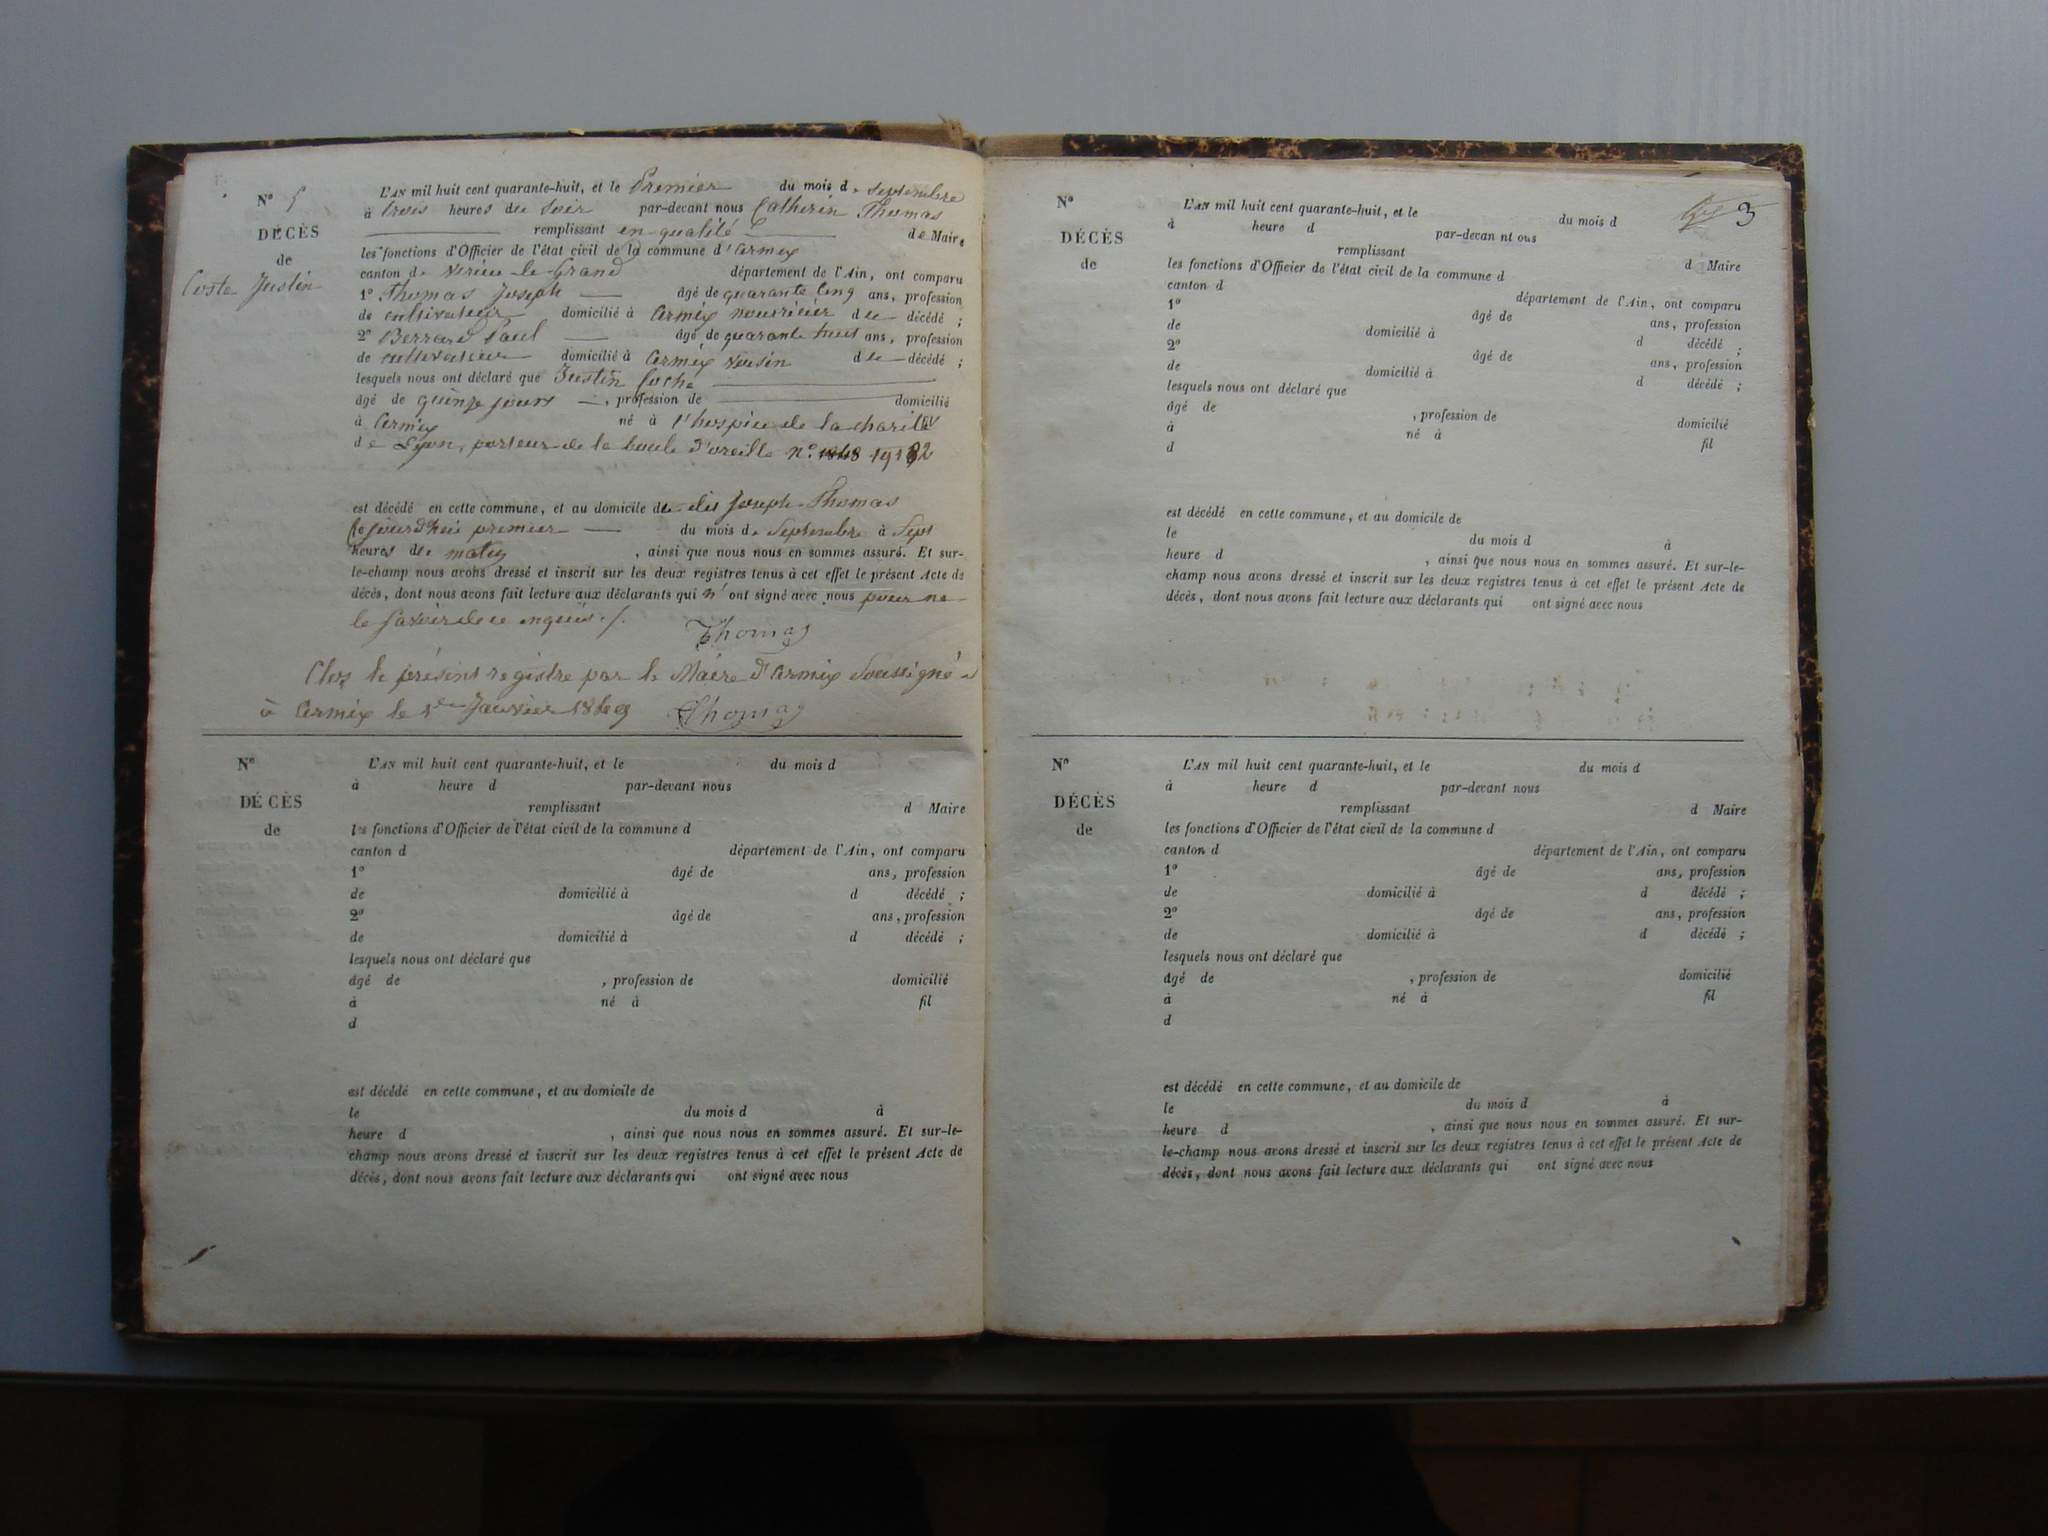 N° 5
DÉCÈS
de
Coste Justin
L'AN mil huit cent quarante-huit, et le Premier du mois de Septembre
à trois heures du Soir par-devant nous Catherin Thomas
remplissant en qualité de Maire
les fonctions d'Officier de l'état civil de la commune d'Armix
canton de Virieu le Grand département de l'Ain, ont comparu
1° Thomas Joseph âgé de quarante Cinq ans, profession
de cultivateur domicilié à Armix nourricier du décédé ;
2° Berrard Paul âgé de quarante huit ans, profession
de cultivateur domicilié à Armix voisin du décédé ;
lesquels nous ont déclaré que Justin
âgé de quinze jours , profession de domicilié
à Armix né à l'hospice de la charité
de Lyon, porteur de la boucle d'oreille n°
est décédé en cette commune, et au domicile du dit Joseph Thomas
Cejourd'hui premier du mois de Septembre à Sept
heures du matin , ainsi que nous nous en sommes assuré. Et sur-
le-champ nous avons dressé et inscrit sur les deux registres tenus à cet effet le présent Acte de
décès, dont nous avons fait lecture aux déclarants qui n' ont signé avec nous pour ne
le savoir de ce enquis ./.
Thomas
Clos le présent registre par le Maire d'Armix Soussigné
à Armix le 1er Janvier 1849 Thomas
N°
DÉCÈS
de
L'AN mil huit cent quarante-huit, et le du mois d
à heure d par-devant nous
remplissant d Maire
les fonctions d'Officier de l'état civil de la commune d
canton d département de l'Ain, ont comparu
1° âgé de ans, profession
de domicilié à d décédé ;
2° âgé de ans, profession
de domicilié à d décédé ;
lesquels nous ont déclaré que
âgé de , profession de domicilié
à né à fil
d
est décédé en cette commune, et au domicile de
le du mois d à
heure d , ainsi que nous nous en sommes assuré. Et sur-le-
champ nous avons dressé et inscrit sur les deux registres tenus à cet effet le présent Acte de
décès, dont nous avons fait lecture aux déclarants qui ont signé avec nous
3
N°
DÉCÈS
de
L'AN mil huit cent quarante-huit, et le du mois d
à heure d par-devan nt ous
remplissant d Maire
les fonctions d'Officier de l'état civil de la commune d
canton d département de l'Ain, ont comparu
1° âgé de ans, profession
de domicilié à d décédé ;
2° âgé de ans, profession
de domicilié à d décédé ;
lesquels nous ont déclaré que
âgé de , profession de domicilié
à né à fil
d
est décédé en cette commune, et au domicile de
le du mois d à
heure d , ainsi que nous nous en sommes assuré. Et sur-le-
champ nous avons dressé et inscrit sur les deux registres tenus à cet effet le présent Acte de
décès, dont nous avons fait lecture aux déclarants qui ont signé avec nous
N°
DÉCÈS
de
L'AN mil huit cent quarante-huit, et le du mois d
à heure d par-devant nous
remplissant d Maire
les fonctions d'Officier de l'état civil de la commune d
canton d département de l'Ain, ont comparu
1° âgé de ans, profession
de domicilié à d décédé ;
2° âgé de ans, profession
de domicilié à d décédé ;
lesquels nous ont déclaré que
âgé de , profession de domicilié
à né à fil
d
est décédé en cette commune, et au domicile de
le du mois d à
heure d , ainsi que nous nous en sommes assuré. Et sur-
le-champ nous avons dressé et inscrit sur les deux registres tenus à cet effet le présent Acte de
décès, dont nous avons fait lecture aux déclarants qui ont signé avec nous